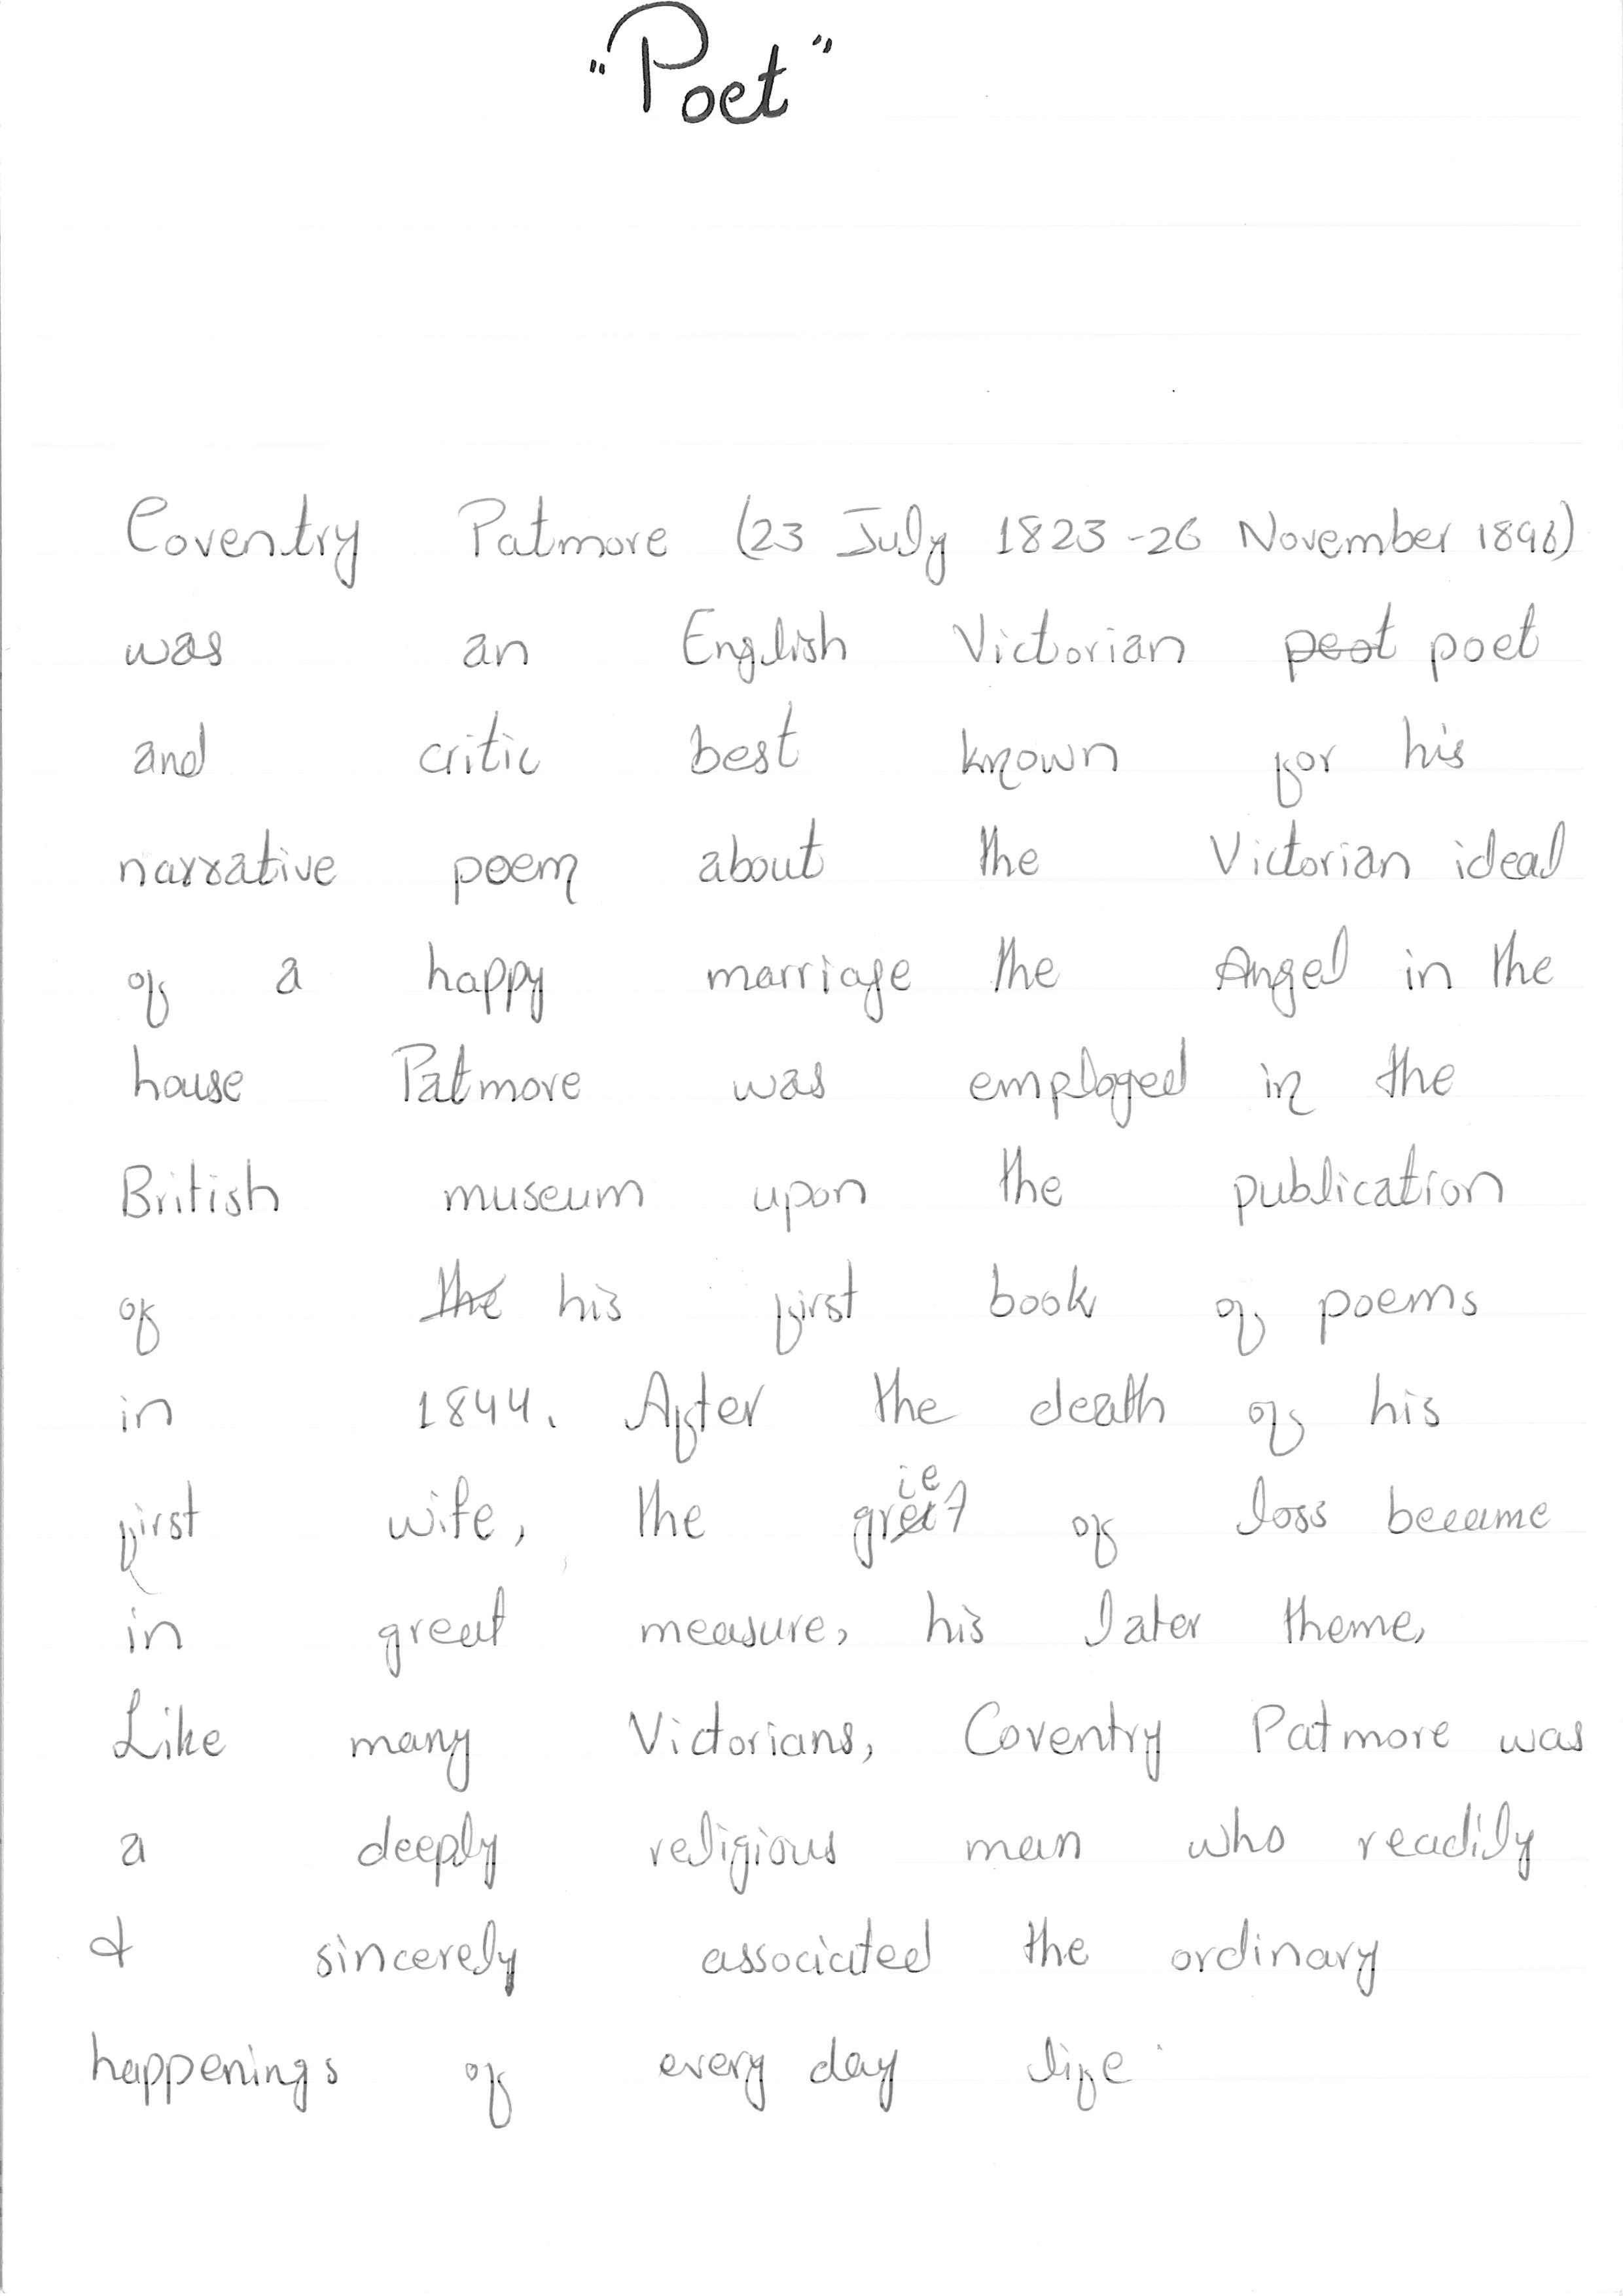 "Poet"
Coventry Patmore (23 July 1823 -26 November 1896)
was an English Victorian peot poet
and critic best known for his
narrative poem about the Victorian ideal
of a happy marriage the Angel in the
house Patmore was employed in the
British museum upon the publication
of the his first book of poems
in 1844. After the death of his
first wife, the grief of loss became
in great measure, his later theme,
Like many Victorians, Coventry Patmore was
a deeply religious man who readily
& sincerely associated the ordinary
happenings of every day life.